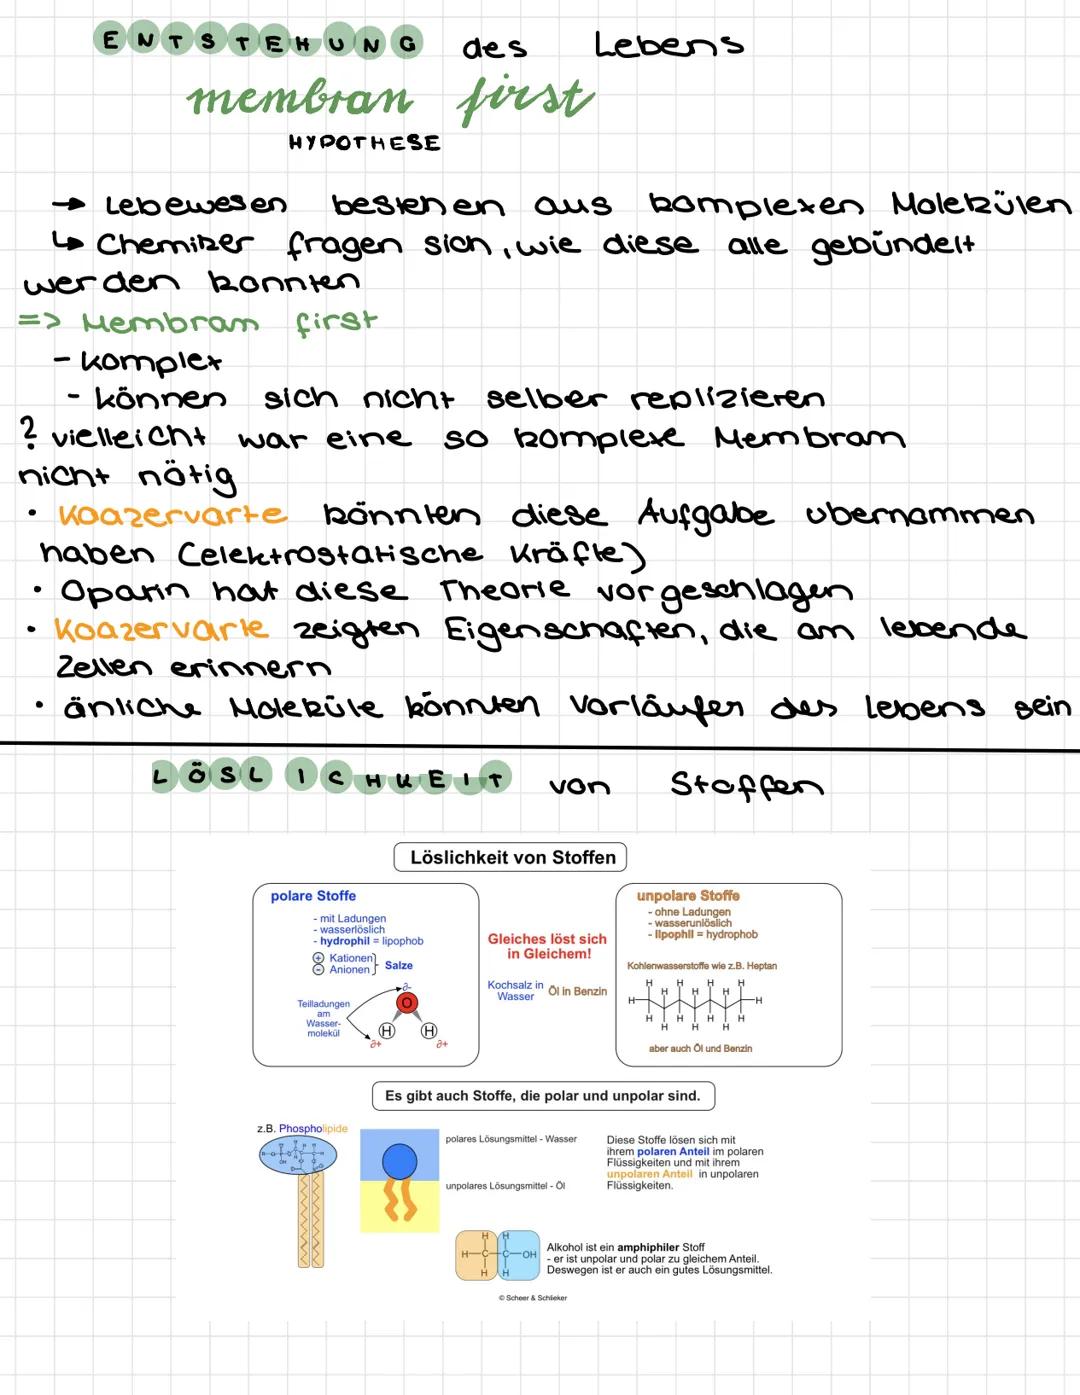 ENTSTEHUNG des Lebens
membran first
HYPOTHESE
→ Lebewesen bestehen aus komplexen Molekülen
↳ Chemiker fragen sich, wie diese alle gebündelt
werden konnten
=> Membram first
- komplex
- können sich nicht selber replizieren
? vielleicht war eine so komplexe Membram
nicht nötig
• Koazervarte könnten diese Aufgabe übernommen
haben (elektrostatische Kräfte)
• Oparin hat diese Theorie vorgeschlagen
• Koazervarte zeigten Eigenschaften, die am lebende
Zellen erinnern
• änliche Moleküle könnten Vorläufer des Lebens sein
LÖSLICHKEIT von Stoffen
Löslichkeit von Stoffen
polare Stoffe
- mit Ladungen
- wasserlöslich
- hydrophil = lipophob
+ Kationen
- Anionen
Salze
Teilladungen
am
Wasser-
molekül
∂-
O
H H
∂+ ∂+
Gleiches löst sich
in Gleichem!
Kochsalz in
Wasser
Öl in Benzin
unpolare Stoffe
- ohne Ladungen
- wasserunlöslich
- lipophil = hydrophob
Kohlenwasserstoffe wie z.B. Heptan
H H H H
H H H
H H
H H H H
H H H
aber auch Öl und Benzin
Es gibt auch Stoffe, die polar und unpolar sind.
z.B. Phospholipide
polares Lösungsmittel - Wasser
unpolares Lösungsmittel - Öl
Diese Stoffe lösen sich mit
ihrem polaren Anteil im polaren
Flüssigkeiten und mit ihrem
unpolaren Anteil in unpolaren
Flüssigkeiten.
H H
H-C-C-OH
H H
Alkohol ist ein amphiphiler Stoff
- er ist unpolar und polar zu gleichem Anteil.
Deswegen ist er auch ein gutes Lösungsmittel.
© Scheer & Schlieker